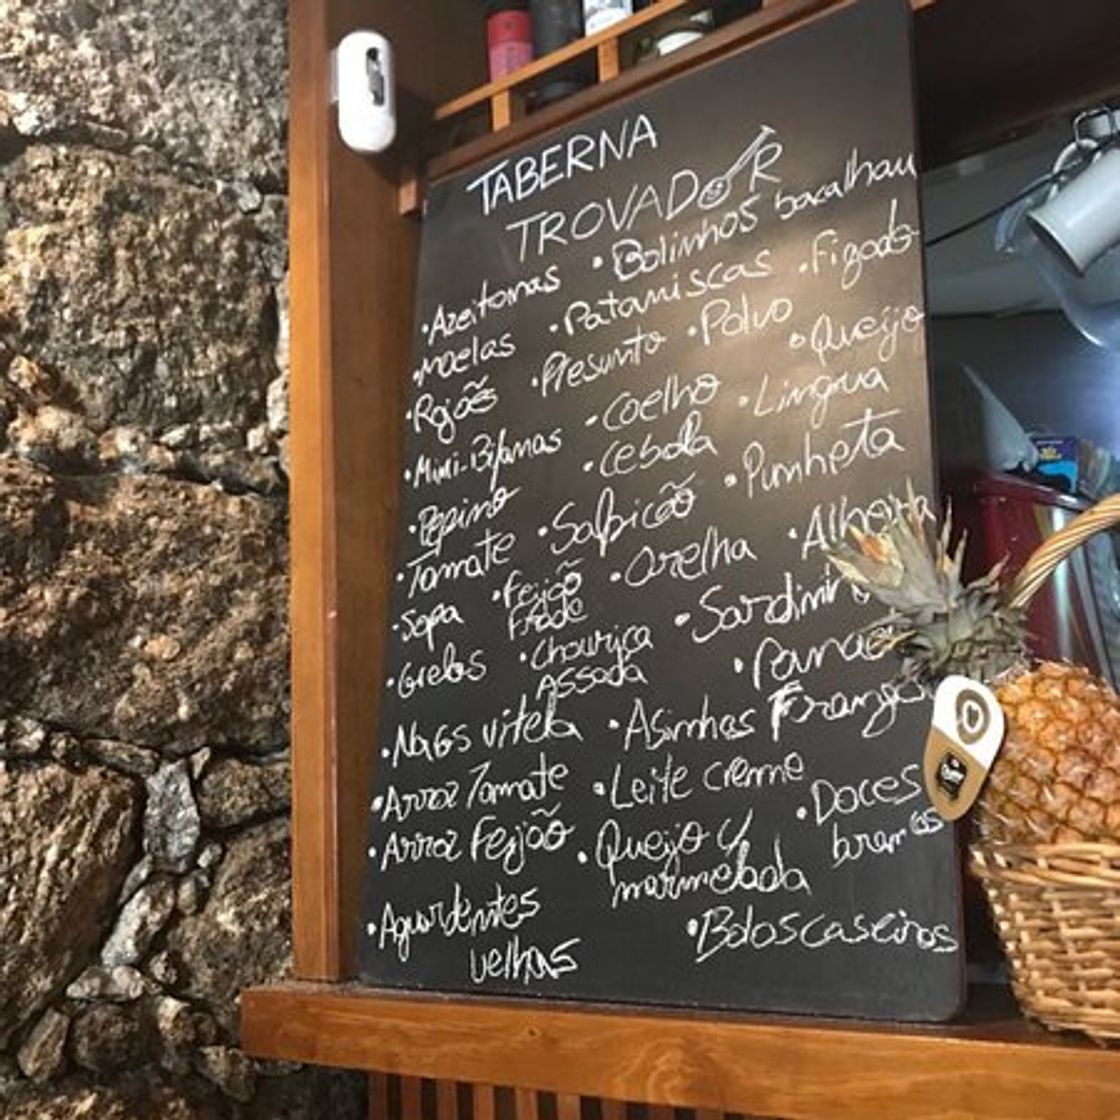 TABERNA
TROVADOR
•Azeitonas •Bolinhos bacalhau
•Moelas •Pataniscas •Figado
•Rojões •Presunto •Polvo •Queijo
•Mini-Bifanas •Coelho •Lingua
•Pepino •Cebola •Punheta
•Tomate •Salpicão •Alheira
•Sopa •Feijão Frade •Orelha
•Grelos •Chouriça Assada
•Nacos vitela •Asinhas Frango
•Arroz Tomate •Leite creme
•Arroz Feijão •Queijo c/ marmelada •Doces
•Aguardentes velhas •Bolos caseiros